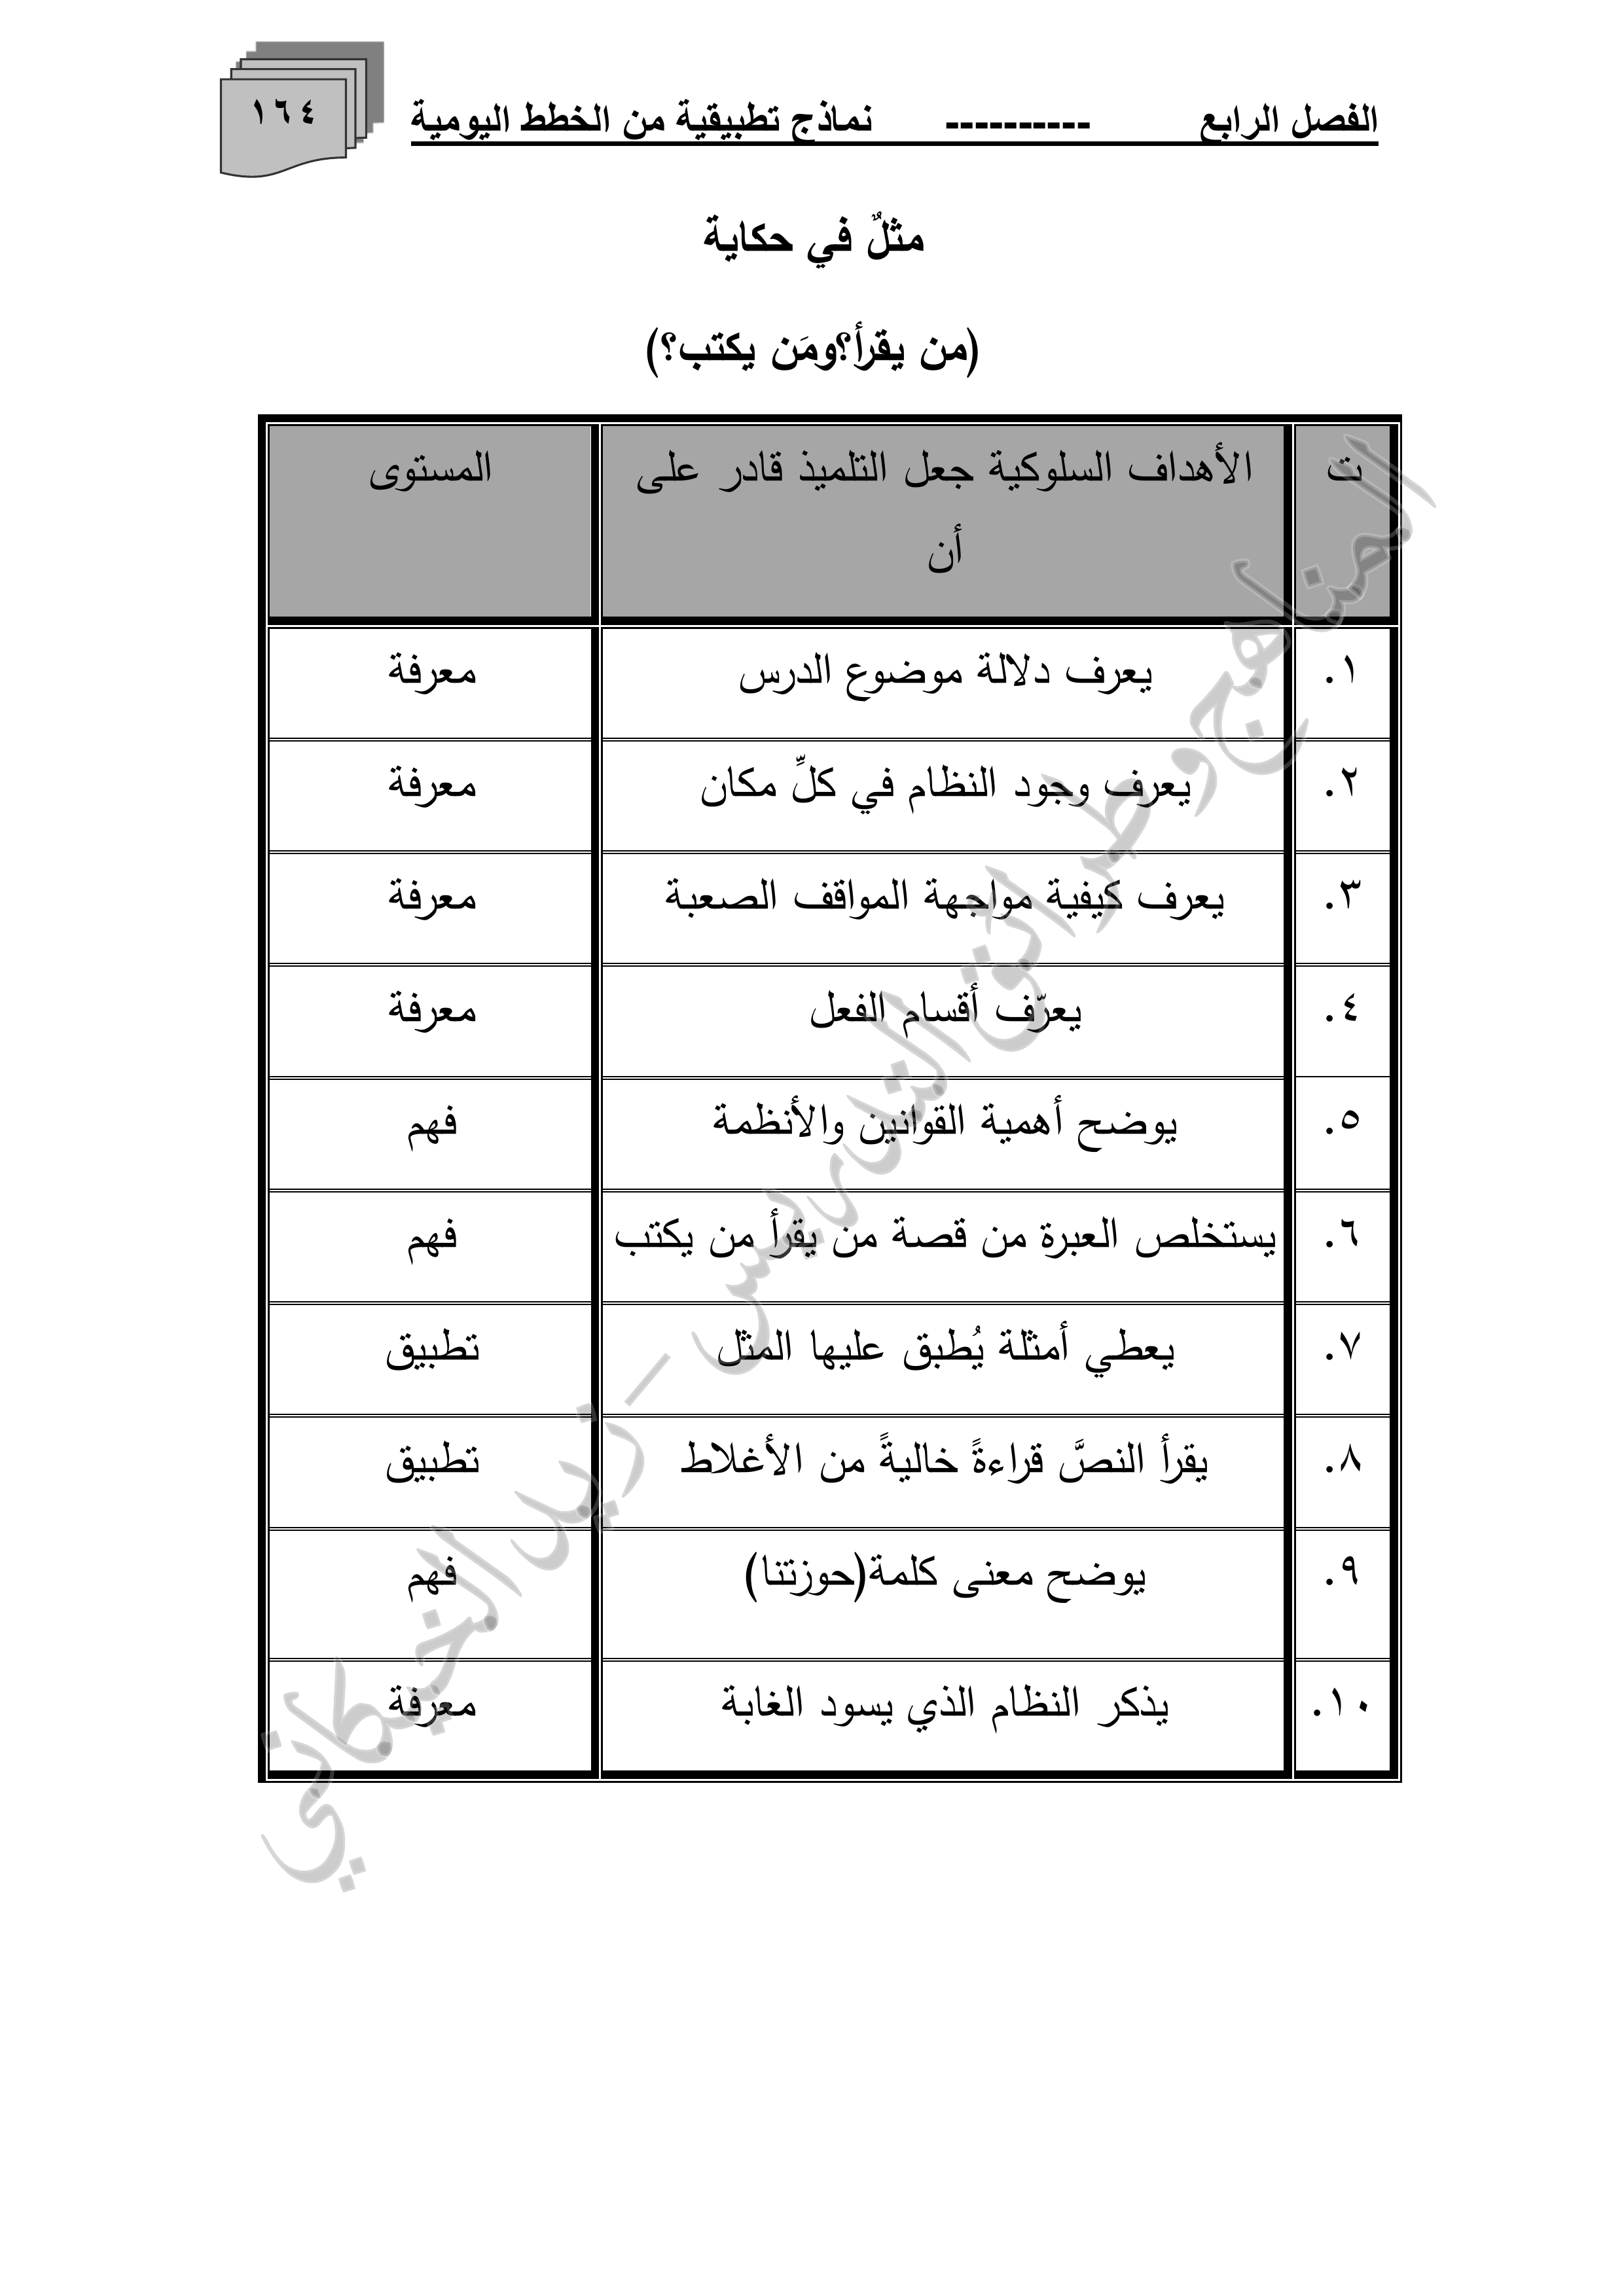 الفصل الرابع ---------- نماذج تطبيقية من الخطط اليومية ١٦٤
مثلٌ في حكاية
(من يقرأ؟ومَن يكتب؟)
ت الأهداف السلوكية جعل التلميذ قادر على المستوى
أن
١. يعرف دلالة موضوع الدرس معرفة
٢. يعرف وجود النظام في كلِّ مكان معرفة
٣. يعرف كيفية مواجهة المواقف الصعبة معرفة
٤. يعرّف أقسام الفعل معرفة
٥. يوضح أهمية القوانين والأنظمة فهم
٦. يستخلص العبرة من قصة من يقرأ من يكتب فهم
٧. يعطي أمثلة يُطبق عليها المثل تطبيق
٨. يقرأ النصَّ قراءةً خاليةً من الأغلاط تطبيق
٩. يوضح معنى كلمة(حوزتنا) فهم
١٠. يذكر النظام الذي يسود الغابة معرفة
المناهج وطرائق التدريس – زيد الخيكاني